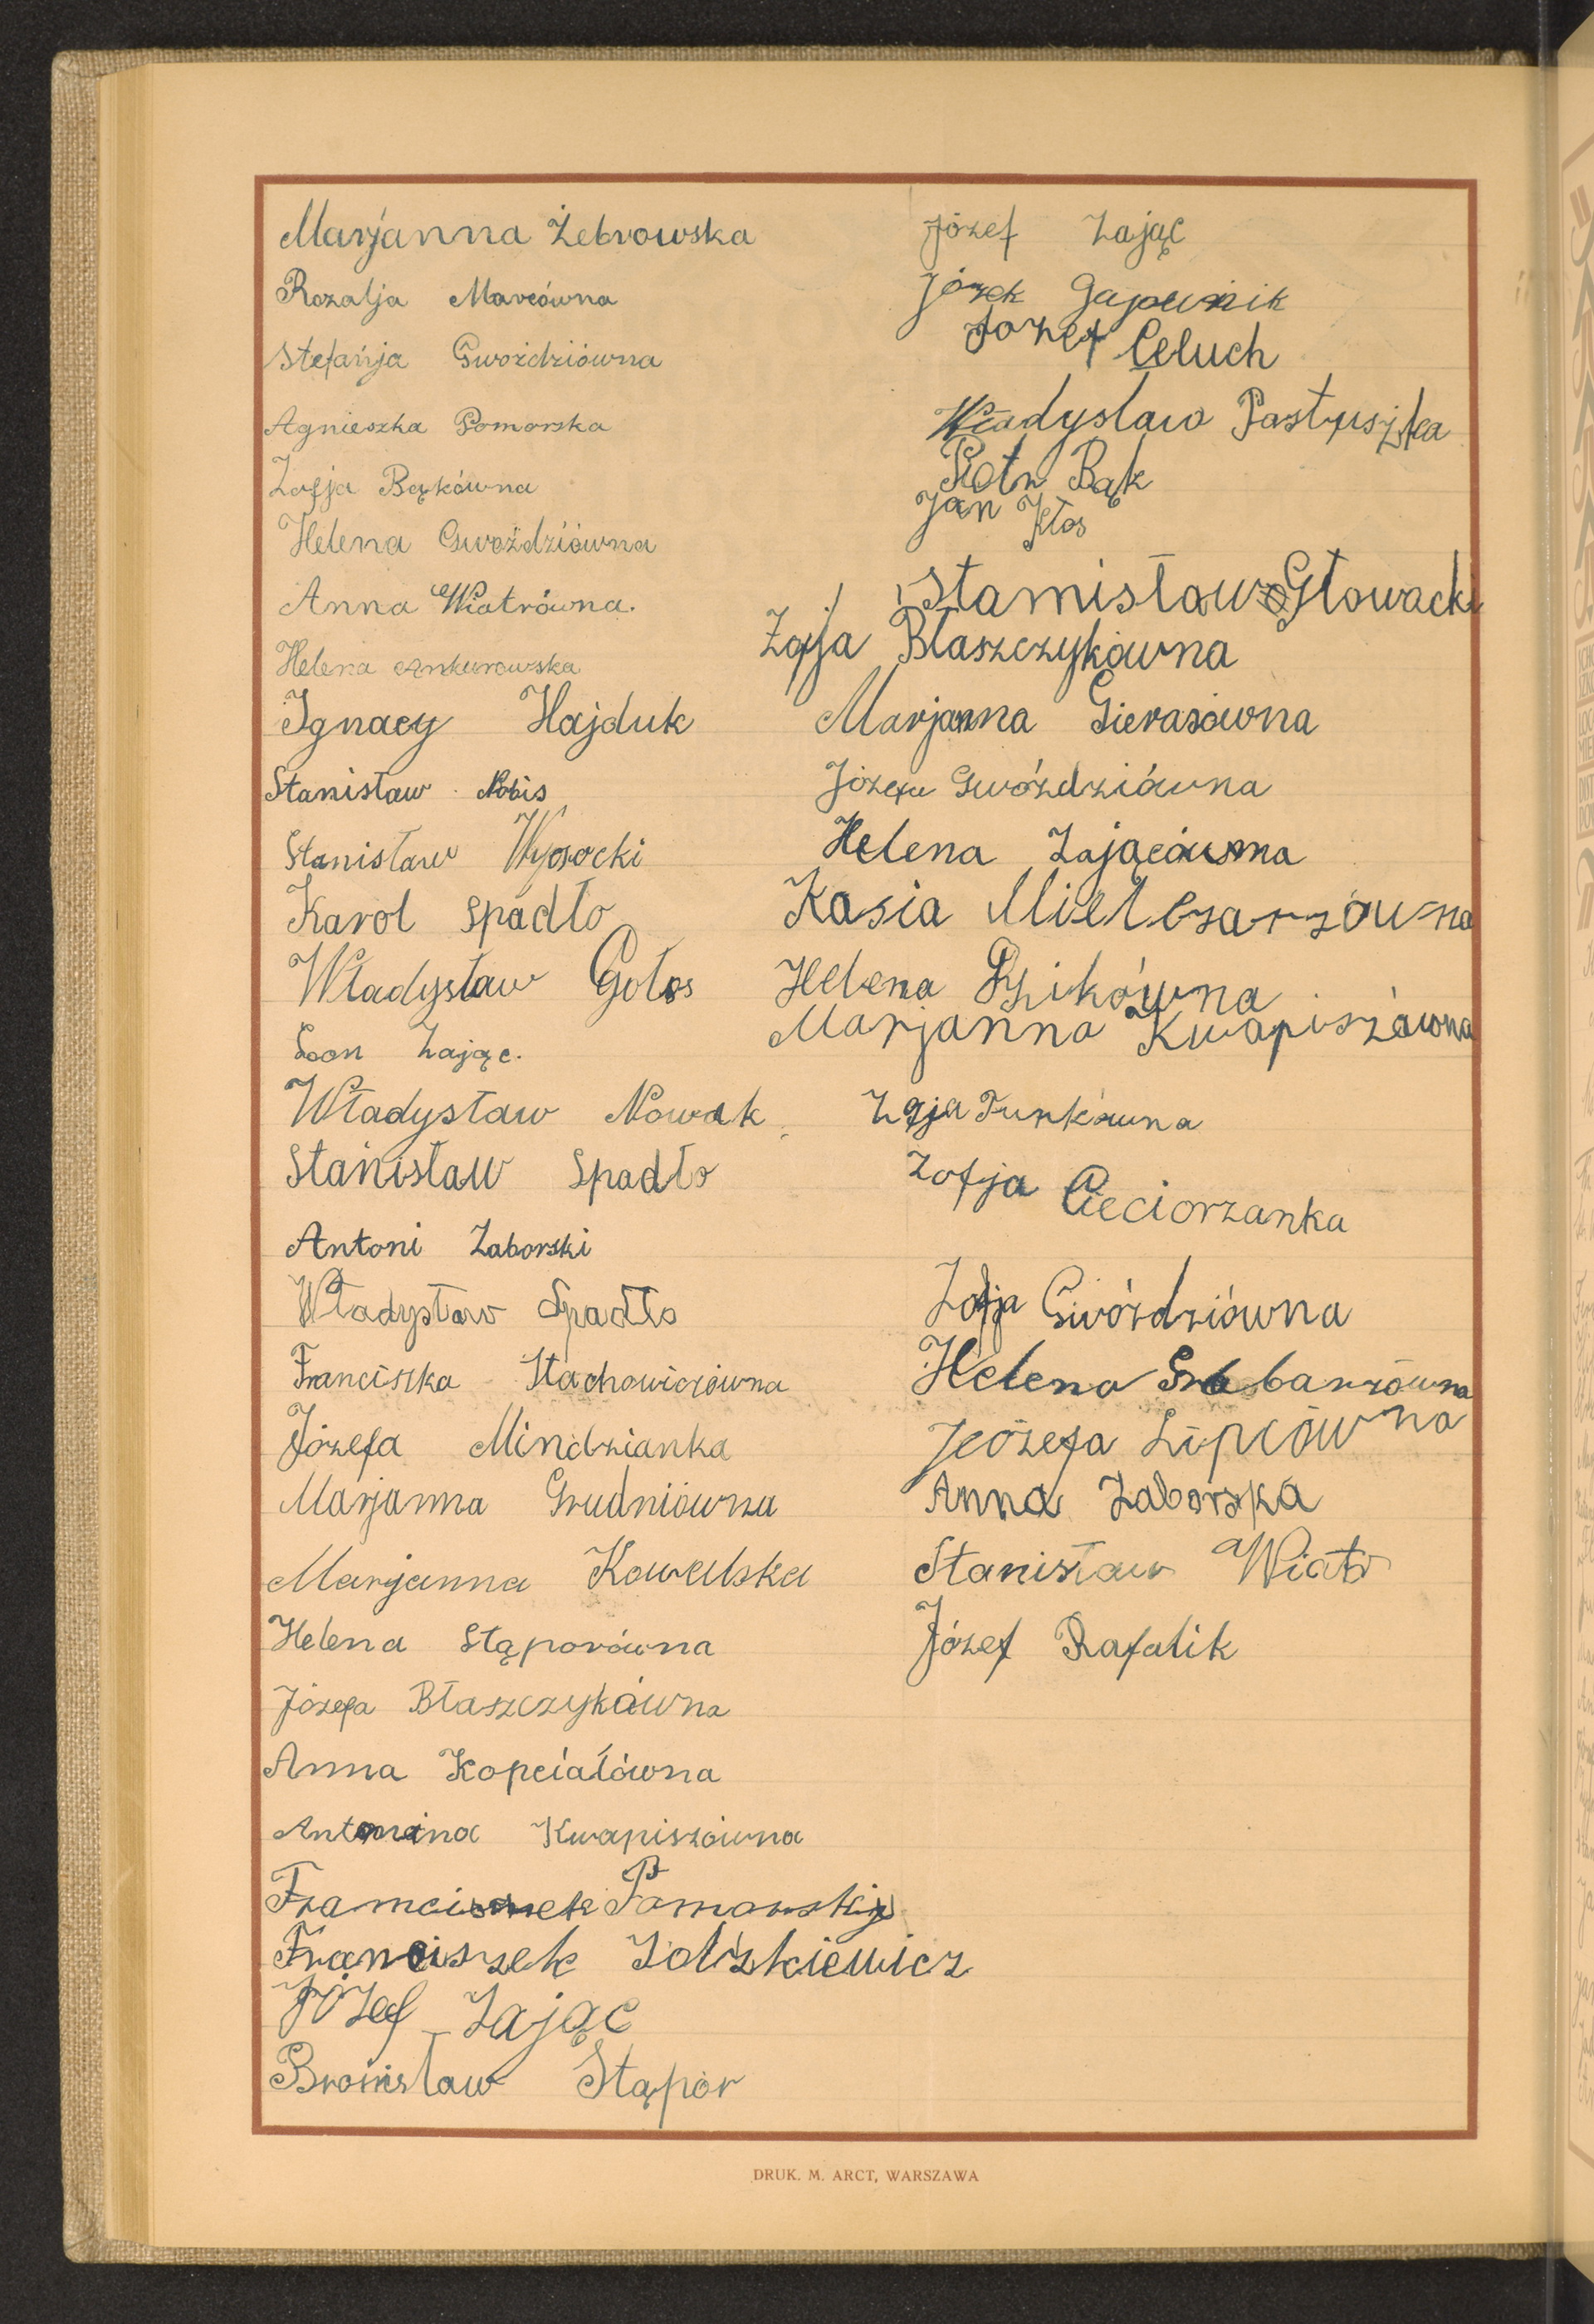 Marjanna Żebrowska
Rozalja Marcówna
Stefanja Gwoździówna
Agnieszka Pomorska
Zofja Bąkówna
Helena Gwoździówna
Anna Wiatrówna.
Helena
Ignacy Hajduk
Stanisław Nobis
Stanisław Wysocki
Karol Spadło
Władysław Gołos
Leon Zając.
Władysław Nowak
Stanisław Spadło
Antoni Zaborski
Władysław Spadło
Franciszka Stachowiczówna
Józefa Mindzianka
Marjanna Grudniówna
Marjanna Kowalska
Helena Stąporówna
Józefa Błaszczykówna
Anna Kopciałówna
Antonina Kwapiszówna
Franciszek Pomorski
Franciszek Żołżkiewicz
Józef Zając
Bronisław Stąpór
Józef Zając
Józek Gajownik
Józef Celuch
Władysław Pastuszka
Piotr Bąk
Jan Kłos
Stanisław Głowacki
Zofja Błaszczykówna
Marjanna Gierasówna
Józefa Gwóździówna
Helena Zającówna
Kasia Mielczarzówna
Helena
Marjanna Kwapiszówna
Zofja Turkówna
Zofja Cieciorzanka
Zofja Gwóździówna
Helena
Józefa Lipcówna
Anna Zaborska
Stanisław Wiatr
Józef Rafalik
DRUK. M. ARCT, WARSZAWA